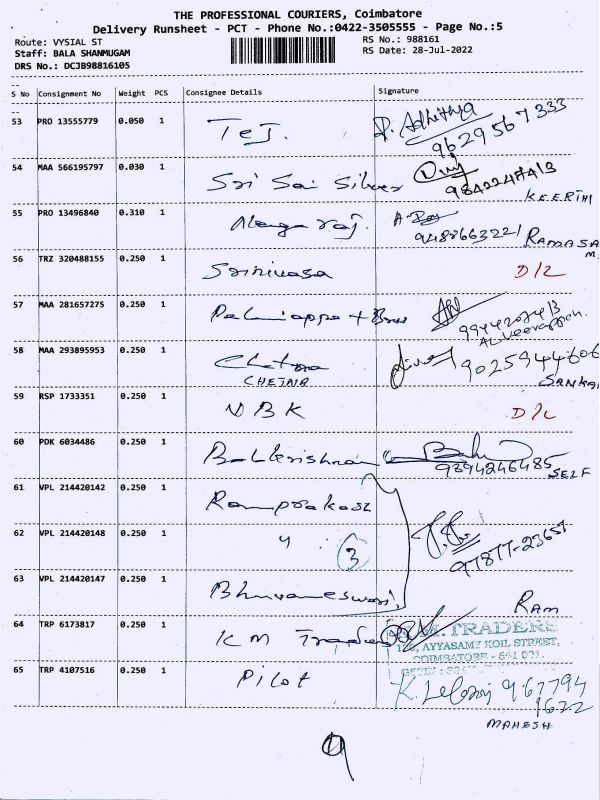 THE PROFESSIONAL COURIERS, Coimbatore
Delivery Runsheet - PCT - Phone No.:0422-3505555 - Page No.:5
Route: VYSIAL ST
RS No.: 988161
Staff: BALA SHANMUGAM
RS Date: 28-Jul-2022
DRS No.: DCJB98816105
S No Consignment No Weight PCS Consignee Details Signature
53 PRO 13555779 0.050 1 Tej. P. Adhithya
9629567333
54 MAA 566195797 0.030 1 Sri Sai Silver
KEERTHI
55 PRO 13496840 0.310 1 Nagaraj.
56 TRZ 320488155 0.250 1 Srinivasa D/L
57 MAA 281657275 0.250 1 Palaniappa + Bros
58 MAA 293895953 0.250 1 Chetna 9025944606
CHETNA SANKA
59 RSP 1733351 0.250 1 NBK D/L
60 PDK 6034486 0.250 1 Balkrishnan
9394246485
SELF
61 VPL 214420142 0.250 1 Ramprakash
62 VPL 214420148 0.250 1 " 3 97877-23657
63 VPL 214420147 0.250 1 Bhuvaneswari
RAM
64 TRP 6173817 0.250 1 K M Traders K.M. TRADERS
AYYASAMI KOIL STREET,
COIMBATORE - 641 001.
65 TRP 4107516 0.250 1 Pilot 967794
1622
MAHESH
9